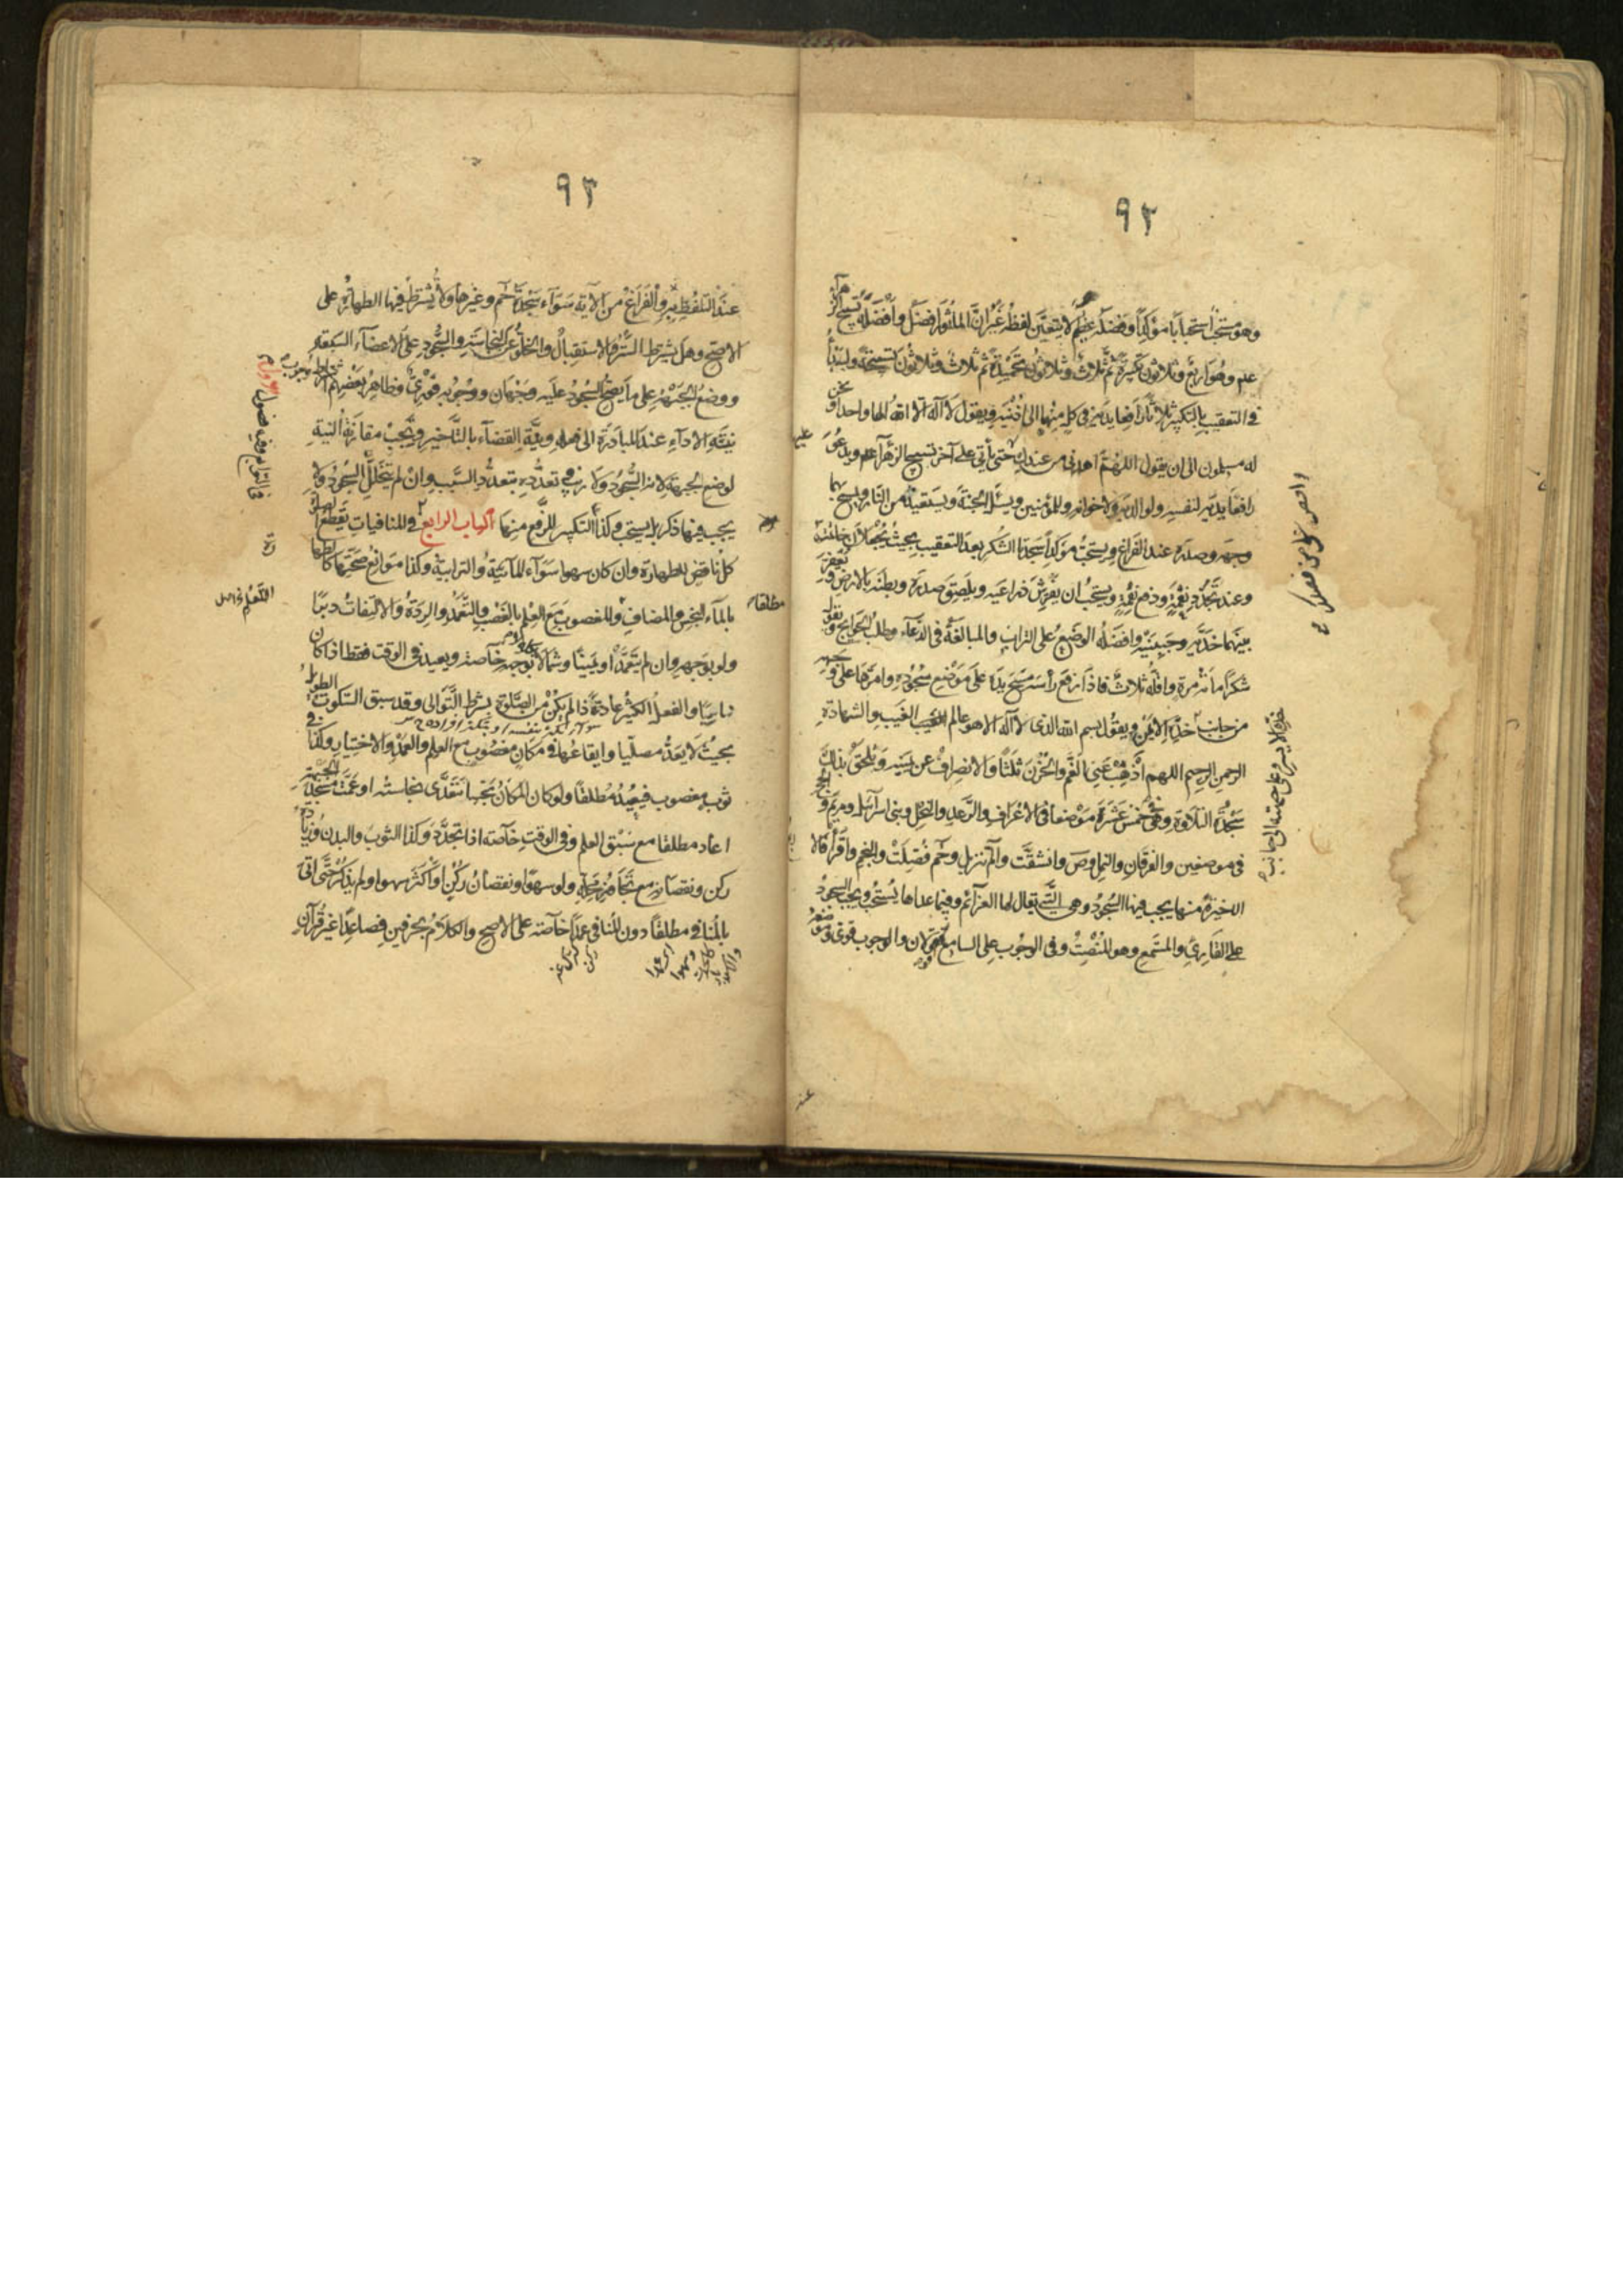 ٩٢
وهو مستحب استحبابا مؤكدا وفضله عظيم لا يتعين لفظه غير ان الماثور افضل وافضله تسبيح الزهرآء
علم وهو اربع وثلاثون تكبيرة ثم ثلاث وثلاثون تحميدة ثم ثلاث وثلاثون تسبيحة وليبدأ
في التعقيب بالتكبير ثلاثا رافعا يديه في كل منها الى اذنيه ويقول لا اله الا الله الها واحدا ونحن
له مسلمون الى ان يقول اللهم اهدني من عندك حتى يأتي على آخر تسبيح الزهرآء علم ويدعو
رافعا يديه لنفسه ولوالديه ولاخوانه وللمؤمنين ويسئل الجنة ويستعيذ من النار ويمسح بهما
وجهه وصدره عند الفراغ ويستحب مؤكدا سجدتا الشكر بعد التعقيب بحيث يجعلان خاتمته
وعند تجدد نعمة ودفع نقمة ويستحب ان يفترش ذراعيه ويلصق صدره وبطنه بالارض ويعفر
بينهما خديه وجبينيه وافضله الوضع على التراب والمبالغة في الدعآء وطلب الحوايج وقول
شكرا مائة مرة واقله ثلاث فاذا رفع رأسه مسح يده على موضع سجوده وامرها على وجهه
من جانب خده الايمن ويقول بسم الله الذي لا اله الا هو عالم الغيب والشهادة
الرحمن الرحيم اللهم اذهب عني الغم والحزن ثلثا والانصراف عن يمينه ويلحق بذلك
سجدة التلاوة وهي خمس عشرة موضعا في الاعراف والرعد والنحل وبني اسرآئيل ومريم والحج
في موضعين والفرقان والنمل وص وانشقت والم تنزيل وحم فصلت والنجم واقرأ فالا
اخيرة منها يجب فيها السجود وهي التي يقال لها العزائم وفيما عداها يستحب ويجب السجود
على القاري والمستمع وهو المنصت وفي الوجوب على السامع قولان والوجوب قوي وموضعه
خده الايسر وعلى جبهته الى جانب
عند
٩٣
عند التلفظ به والفراغ من الآية سوآء سجدة حم وغيرها ولا يشترط فيها الطهارة على
الاصح وهل يشترط الستر والاستقبال والخلو عن النجاسة والسجود على الاعضآء السبعة
ووضع الجبهة على ما يصح السجود عليه وجهان ووجوبه فوري وظاهر بعضهم اشتراط وجوب
نية الادآء عند المبادرة الى فعله ونية القضآء بالتأخير ويجب مقارنة النية
لوضع الجبهة لانه السجود ولا ريب في تعدده بتعدد السبب وان لم يتخلل السجود ولا
يجب فيها ذكر بل يستحب وكذا التكبير للرفع منها الباب الرابع في المنافيات يقطع الصلوة
كل ناقض للطهارة وان كان سهوا سوآء المآئية والترابية وكذا موانع صحتها كالطهارة
بالمآء النجس والمضاف والمغصوب مع العلم بالغصب والتعمد والردة والالتفات دبرا
ولو بوجهه وان لم يتعمد او يمينا وشمالا بوجهه خاصة ويعيد في الوقت فقط اذا كان
ناسيا والفعل الكثير عادة اذا لم يكن من الصلوة بشرط التوالى وقد سبق السكوت الطويل
بحيث لا يعد مصليا وايقاعها في مكان مغصوب مع العلم والعمد والاختيار وكذا في
ثوب مغصوب فيعيد مطلقا ولو كان المكان نجسا تتعدى نجاسته او عمت مسجد الجبهة
اعاد مطلقا مع سبق العلم وفي الوقت خآصة اذا تجدد وكذا الثوب والبدن وزيادة
ركن ونقصانه مع تجاوز محله ولو سهوا ونقصان ركن او اكثر سهوا ولم يذكر حتى اتى
بالمنافي مطلقا دون المنافي عمدا خآصة على الاصح والكلام بحرفين فصاعدا غير قرآن
مطلقا